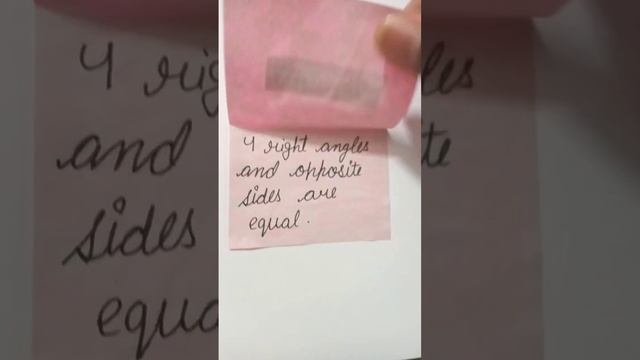 4 right angles
and opposite
sides are
equal.